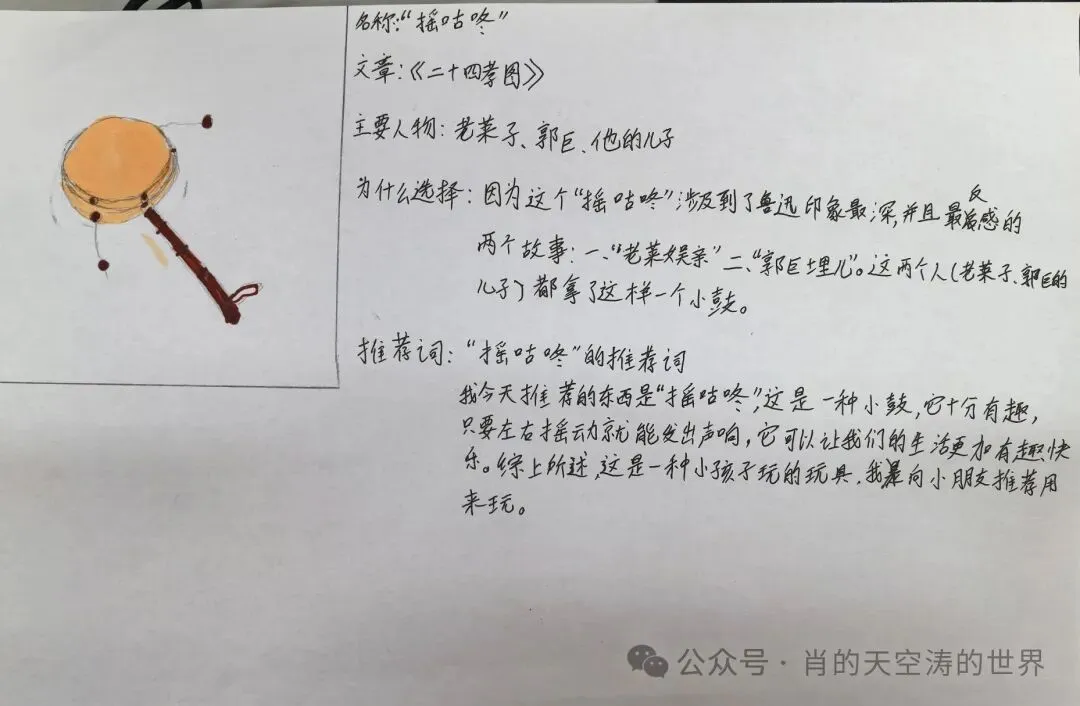 名称:“摇咕咚”
文章:《二十四孝图》
主要人物:老莱子、郭巨、他的儿子
为什么选择:因为这个“摇咕咚”涉及到了鲁迅印象最深,并且最反感的
两个故事:一、“老莱娱亲”二、“郭巨埋儿”。这两个人(老莱子、郭巨的
儿子)都拿了这样一个小鼓。
推荐词:“摇咕咚”的推荐词
我今天推荐的东西是“摇咕咚”,这是一种小鼓,它十分有趣,
只要左右摇动就能发出声响,它可以让我们的生活更加有趣快
乐。综上所述,这是一种小孩子玩的玩具,我是向小朋友推荐用
来玩。
公众号·肖的天空涛的世界